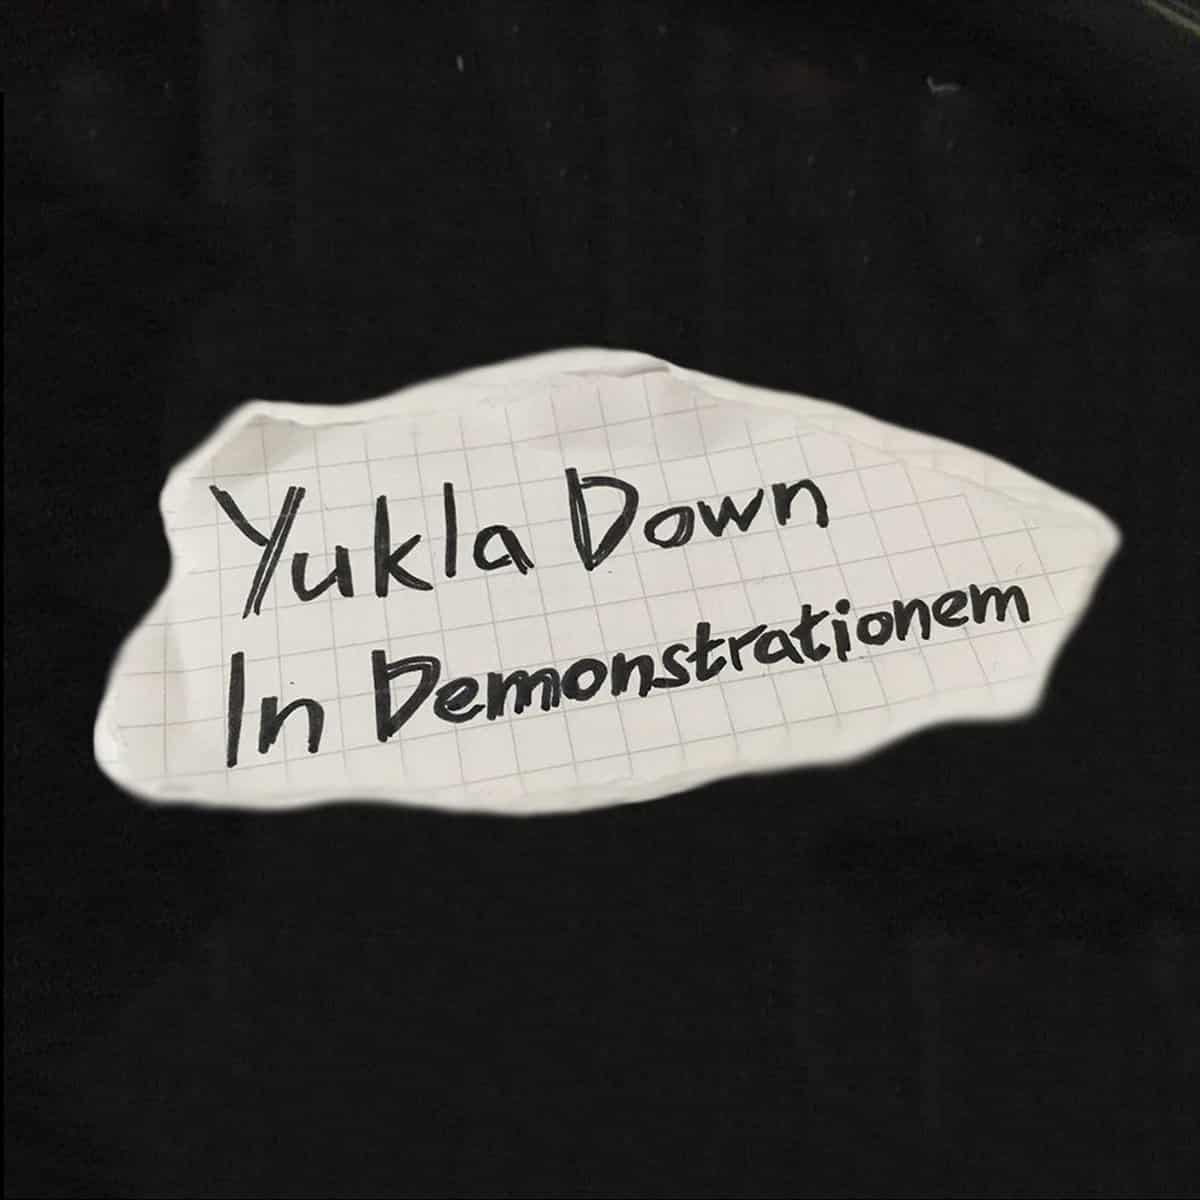 Yukla Down
In Demonstrationem